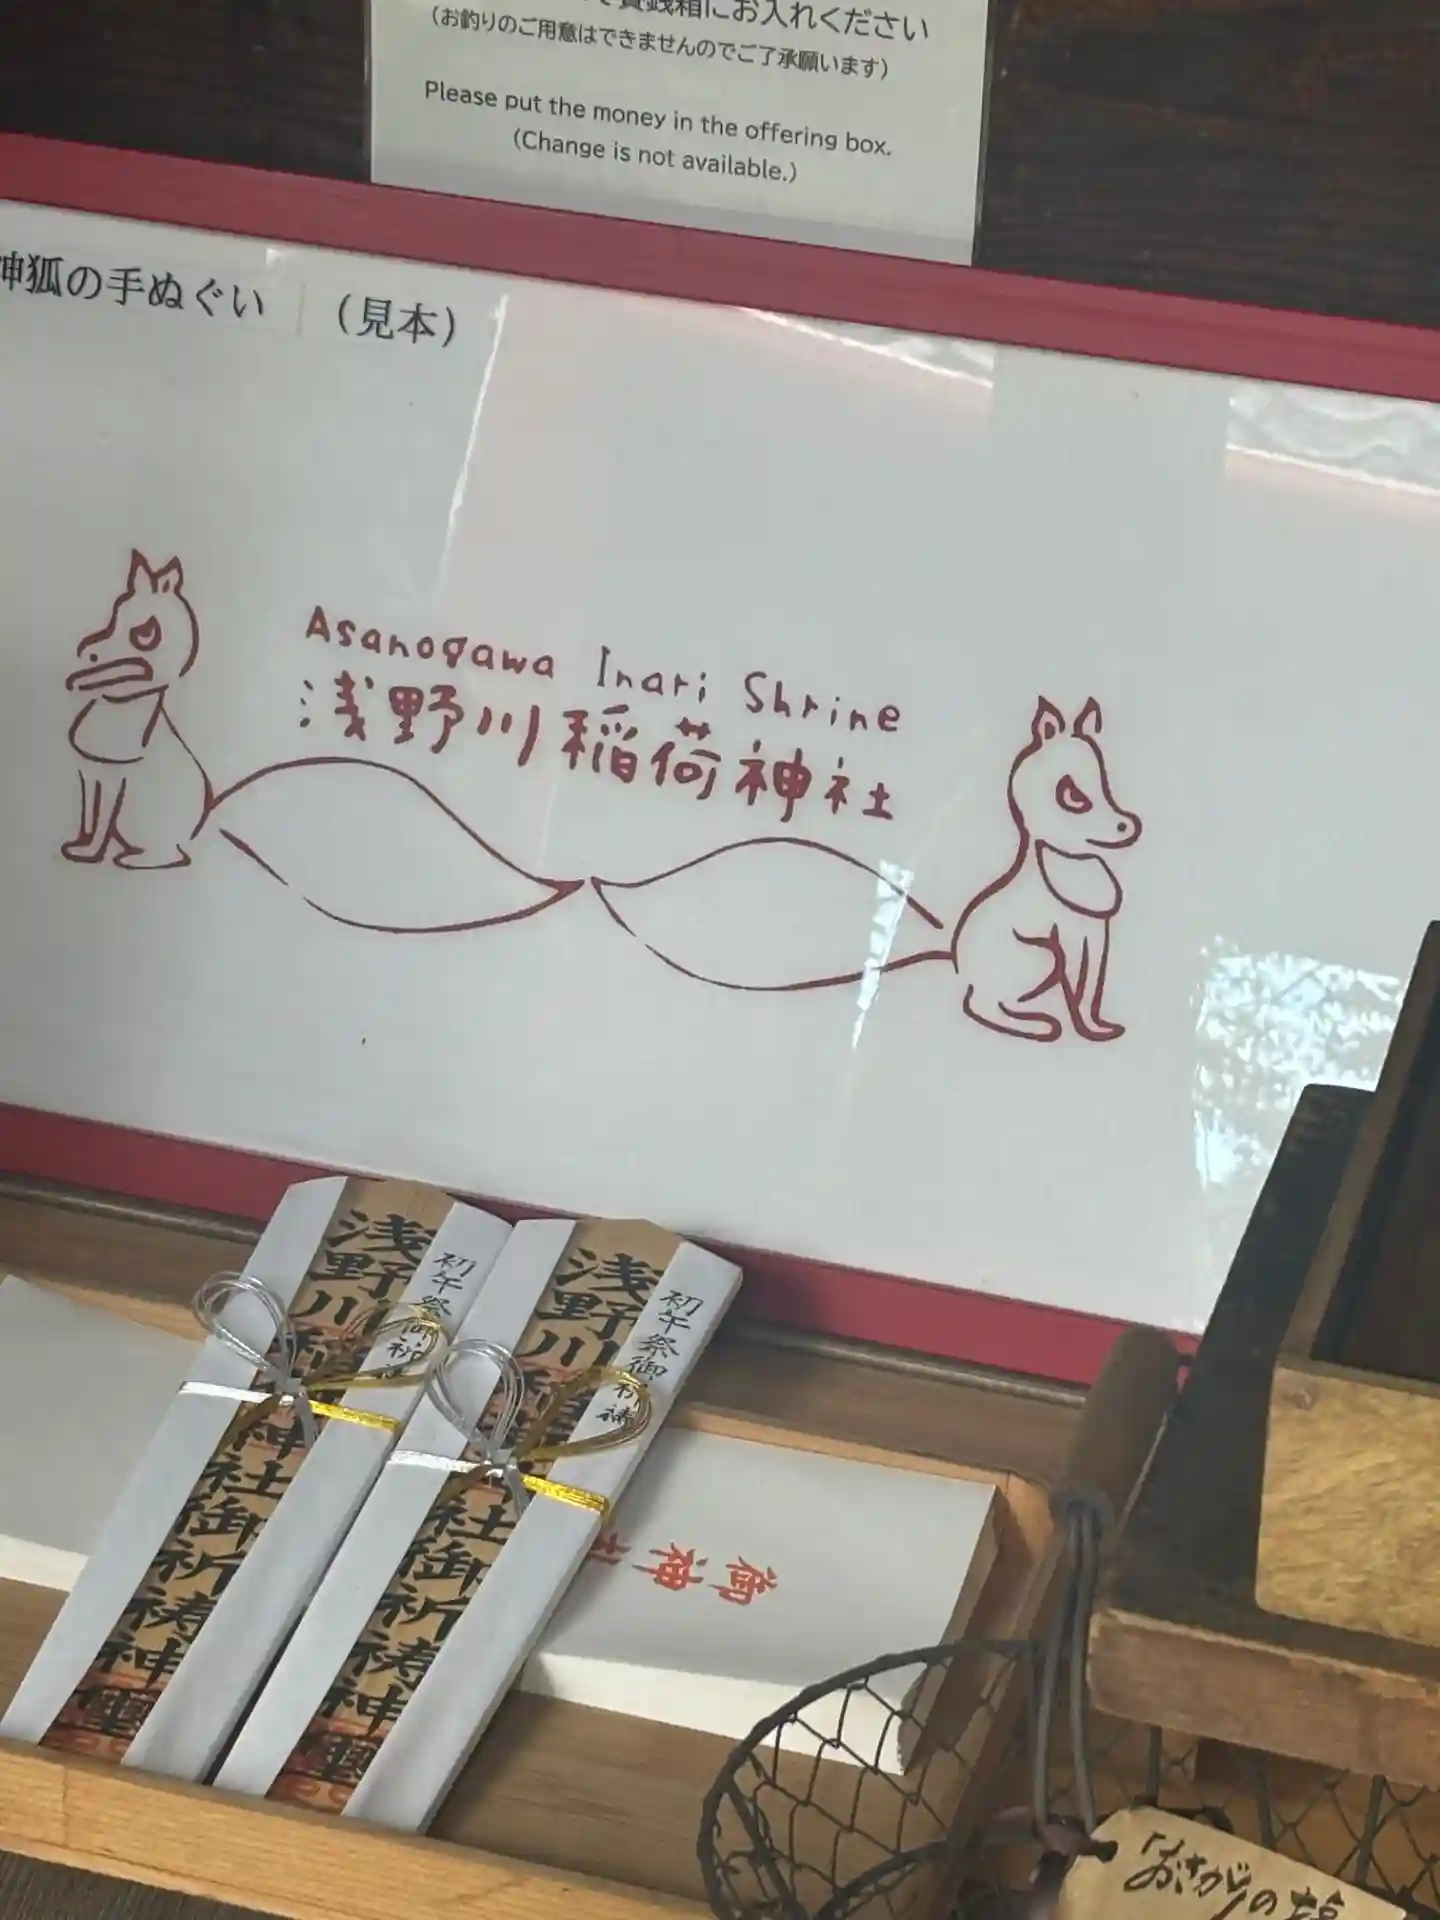 賽銭箱にお入れください
（お釣りのご用意はできませんのでご了承願います）
Please put the money in the offering box.
(Change is not available.)
神狐の手ぬぐい （見本）
Asanogawa Inari Shrine
浅野川稲荷神社
浅野川稲荷神社御祈祷神璽
初午祭御祈祷
浅野川稲荷神社御祈祷神璽
初午祭御祈祷
御神
「おさがりの塩